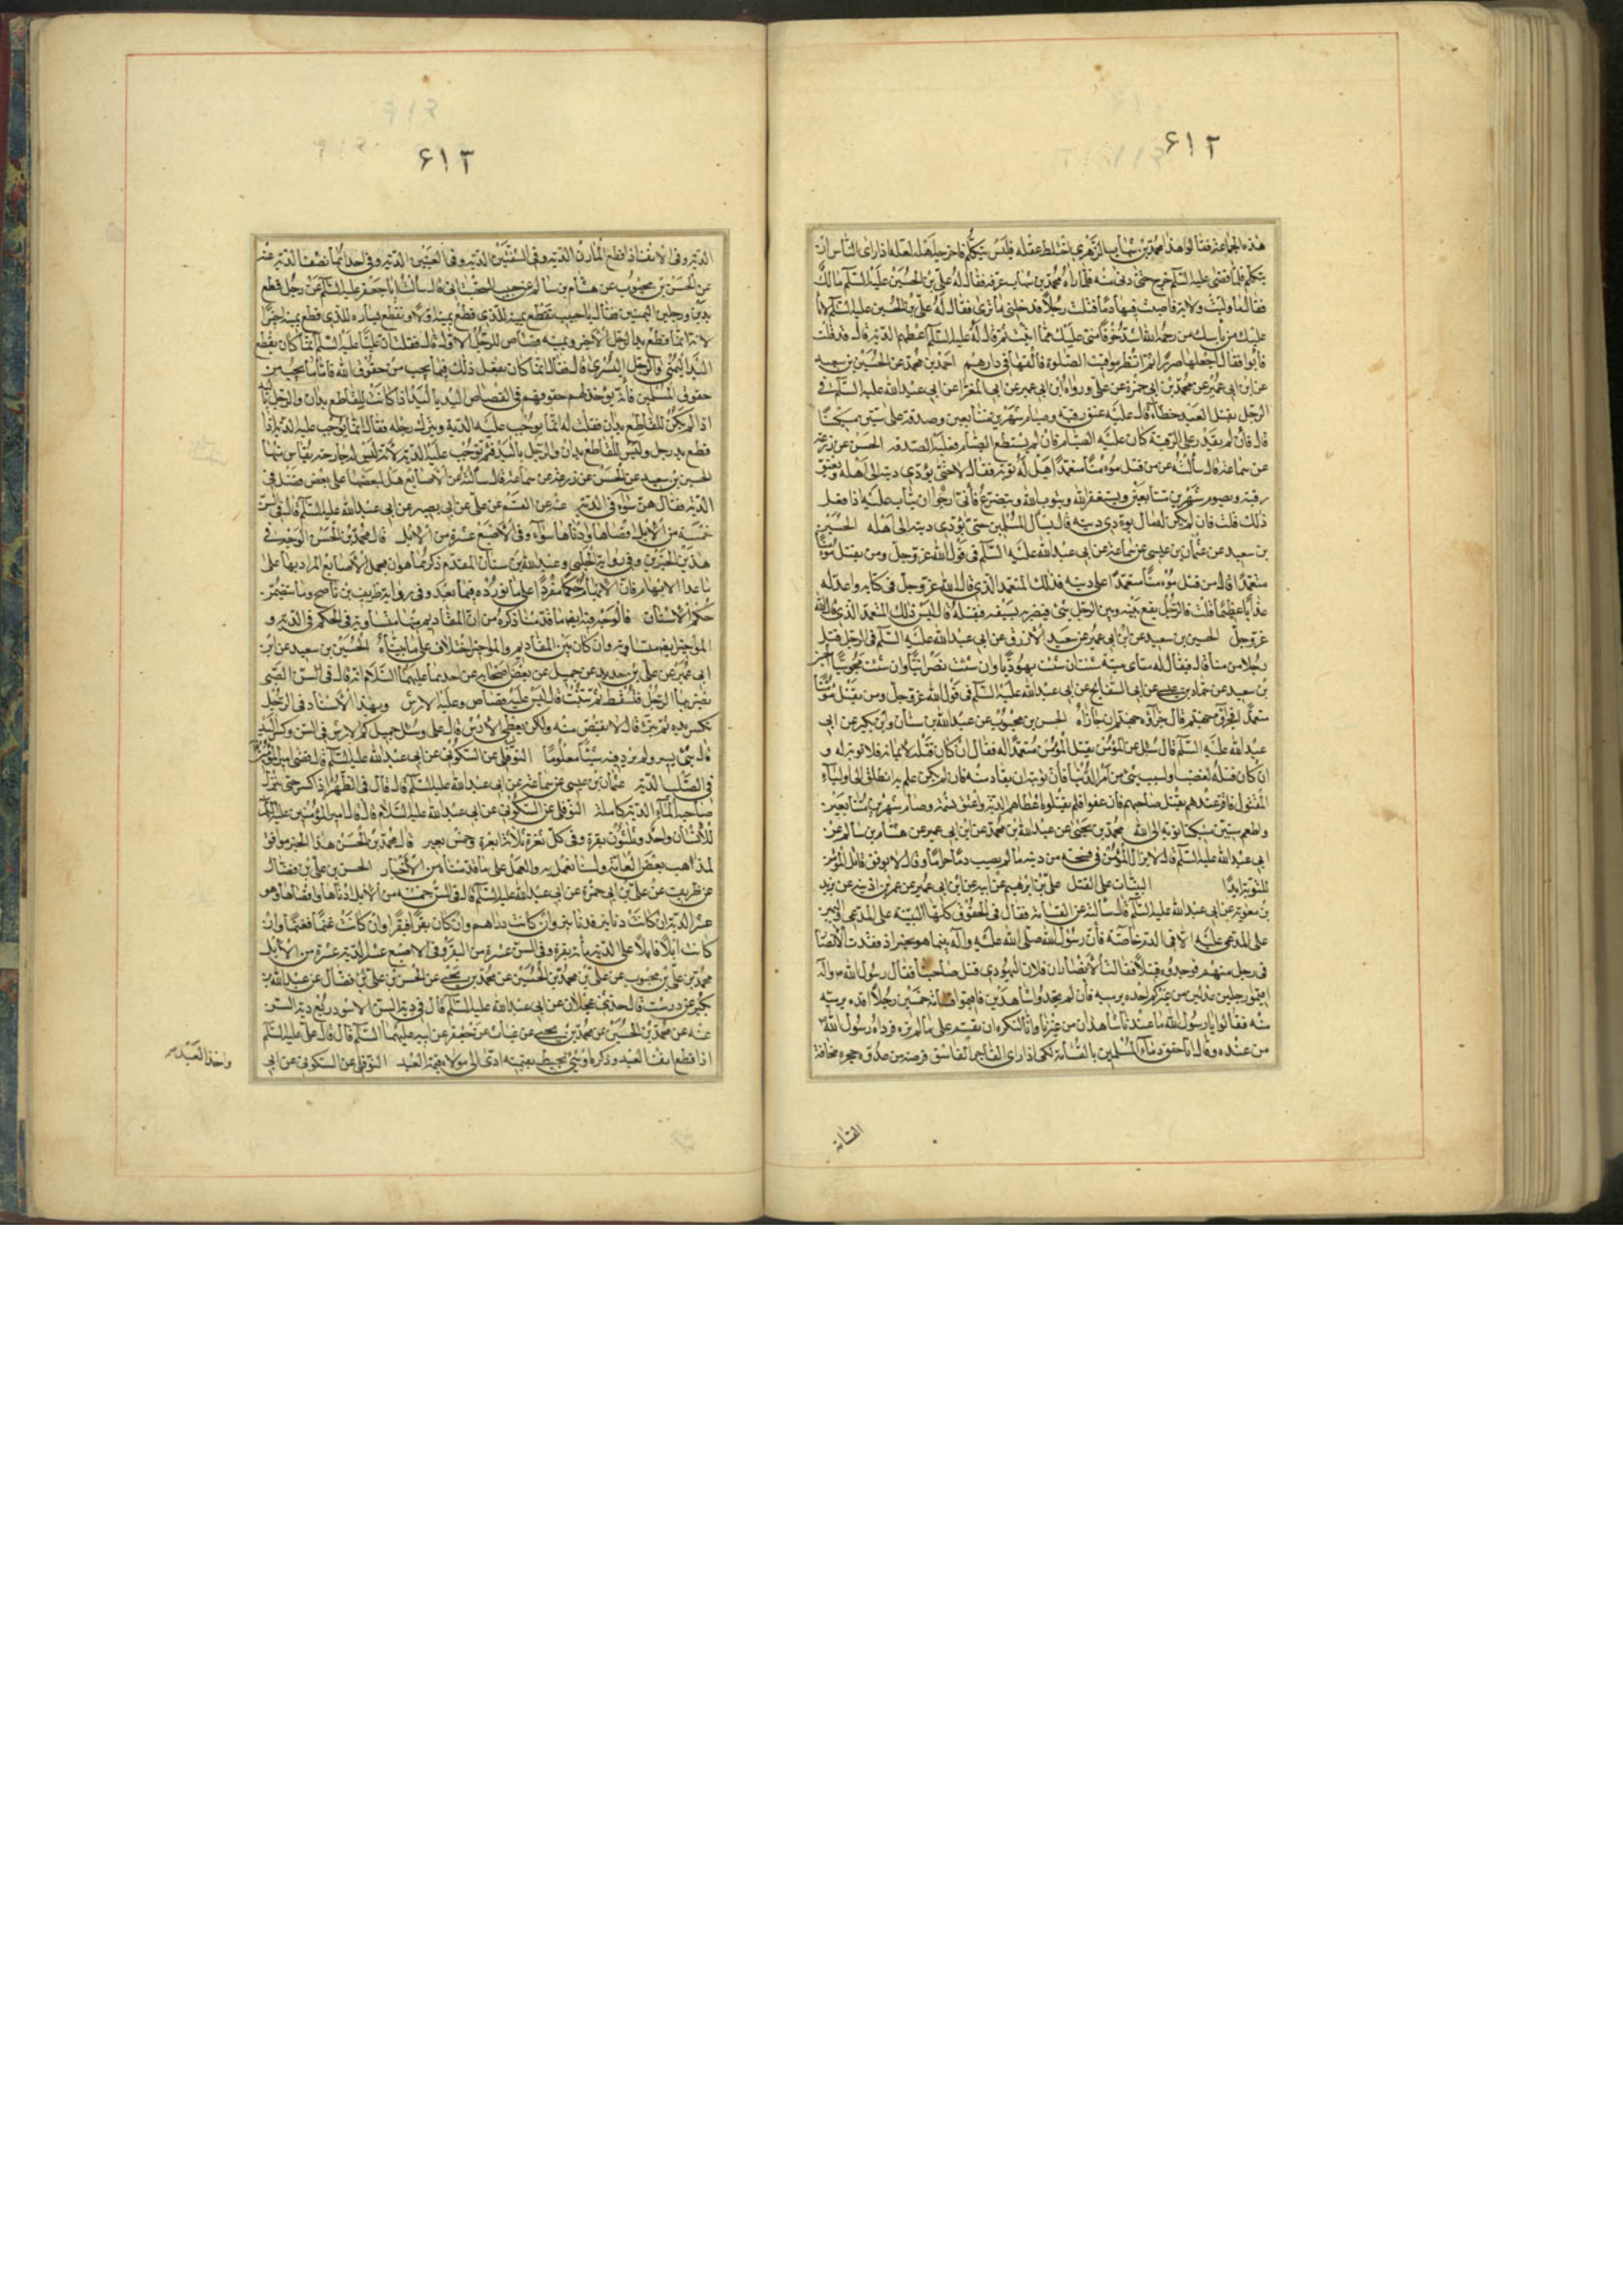 ۶۱۲
هذه الجماعة فقالوا هذا محمد بن شهاب الزهري اختلط عقله فليس يتكلم فاخرجه اهله لعله اذا راى الناس ان
يتكلم فلما قضى عليه السلم خرج حتى دنى منه فلما راه محمد بن شهاب عرفه فقال له علي بن الحسين عليه السلم مالك
فقال وليت ولاية فاصبت فيها دما قتلت رجلا فدخلني ما ترى فقال له علي بن الحسين عليه السلم لانا
عليك من يأسك من رحمة الله اشد خوفا مني عليك مما اتيت ثم قال له عليه السلم اعطهم الدية قال قد فعلت
فابوا فقال اجعلها صررا ثم انظر مواقيت الصلوة فالقها في دارهم احمد بن محمد عن الحسين بن سعيد
عن ابن ابي عمير عن محمد بن ابي حمزة عن علي ورواه ابن ابي عمير عن ابي المغرا عن ابي عبد الله عليه السلم في
الرجل يقتل العبد خطاء قال عليه عتق رقبة وصيام شهرين متتابعين وصدقة على ستين مسكينا
قال فان لم يقدر على الرقبة كان عليه الصيام فان لم يستطع الصيام فعليه الصدقة الحسن عن زرعة
عن سماعة قال سألته عن من قتل مؤمنا متعمدا هل له توبة فقال لا حتى يؤدي ديته الى اهله ويعتق
رقبة ويصوم شهرين متتابعين ويستغفر الله ويتوب الله ويتضرع فأني ارجو ان يتاب عليه اذا فعل
ذلك قلت فان لم يكن له مال يودي ديته قال يسأل المسلمين حتى يؤدي ديته الى اهله الحسين
بن سعيد عن عثمان بن عيسى عن سماعة عن ابي عبد الله عليه السلم في قول الله عز وجل ومن يقتل مؤمنا
متعمدا قال من قتل مؤمنا متعمدا على دينه فذلك المتعمد الذي قال الله عز وجل في كتابه واعد له
عذابا عظيما قلت فالرجل يقع بينه وبين الرجل شئ فيضربه بسيفه فيقتله قال ليس ذلك المتعمد الذي قال الله
عز وجل الحسين بن سعيد عن ابن ابي عمير عن سعيد الأزرق عن ابي عبد الله عليه السلم في الرجل قتل
رجلا مؤمنا قال فيقال له مت اي ميتة شئت ان شئت يهوديا وان شئت نصرانيا وان شئت مجوسيا
بن سعيد عن حماد بن عيسى عن ابي السفاتج عن ابي عبد الله عليه السلم في قول الله عز وجل ومن يقتل مؤمنا
متعمدا فجزاؤه جهنم قال جزاؤه جهنم ان جازاه الحسن بن محبوب عن عبد الله بن سنان وابن بكير عن ابي
عبد الله عليه السلم قال سئل عن المؤمن يقتل المؤمن متعمدا له فقال ان كان قتله لايمانه فلا توبة له و
ان كان قتله لغضب او لسبب شئ من امر الدنيا فأن توبته ان يقاد منه فان لم يكن علم به انطلق الى اولياء
المقتول فاقر عندهم بقتل صاحبهم فأن عفوا فلم يقتلوه اعطاهم الدية واعتق نسمة وصام شهرين متتابعين
واطعم ستين مسكينا توبة الى الله محمد بن يحيى عن عبد الله بن محمد عن ابن ابي عمير عن هشام بن سالم عن
ابي عبد الله عليه السلم قال لا يزال المؤمن في فسحة من دينه ما لم يصب دما حراما وقال لا يوفق قاتل المؤمن
للتوبة ابدا البينات على القتل علي بن ابرهيم عن ابيه عن ابن ابي عمير عن عمر بن اذينة عن بريد
بن معوية عن ابي عبد الله عليه السلم قال سألته عن القسامة فقال في الحقوق كلها البينة على المدعي واليمين
على المدعى عليه الا في الدم خاصة فأن رسول الله صلى الله عليه وآله بينما هو بخيبر اذ فقدت الانصار
في رجل منهم فوجدوه قتيلا فقالت الأنصار ان فلان اليهودي قتل صاحبنا فقال رسول الله
اقيموا رجلين عدلين من غيركم اقده برمته فأن لم تجدوا شاهدين فاقيموا قسامة خمسين رجلا اقده برمته
منه فقالوا يا رسول الله ما عندنا شاهدان من غيرنا وانا لنكره ان نقسم على ما لم نره فوداه رسول الله
من عنده وقال انا حقن دماء المسلمين بالقسامة لكي اذا راى الفاجر الفاسق فرصة من عدوه حجزه مخافة
القسامة
۶۱۳
الدية وفي الانف اذا قطع المارن الدية وفي الشفتين الدية وفي العينين الدية وفي احداهما نصف الدية عنه
عن الحسن بن محبوب عن هشام بن سالم عن حبيب السجستاني قال سألت ابا جعفر عليه السلم عن رجل قطع
يدين لرجلين اليمينين فقال يا حبيب تقطع يمينه للذي قطع يمينه اولا وتقطع يساره للذي قطع يمينه اخيرا
لانه انما قطع يد الرجل الأخير ويمينه قصاص للرجل الاول قال فقلت ان عليا عليه السلم انما كان يقطع
اليد اليمنى والرجل اليسرى قال فقال انما كان يفعل ذلك فيما يجب من حقوق الله فاما ما يجب من
حقوق المسلمين فأنه يؤخذ لهم حقوقهم في القصاص اليد باليد اذا كانت للقاطع يدان والرجل باليد
اذا لم يكن للقاطع يدان فقلت له انما يوجب عليه الدية وتترك رجله فقال انما يوجب عليه الدية اذا
قطع يد رجل وليس للقاطع يدان ولا رجلان فثم توجب عليه الدية لأنه ليس له جارحة يقاص منها
الحسين بن سعيد عن الحسن عن زرعة عن سماعة قال سألته عن الأصابع هل لبعضها على بعض فضل في
الدية فقال هن سواء في الدية عنه عن القسم عن علي عن ابي بصير عن ابي عبد الله عليه السلم قال في السن
خمسة من الابل اقصاها وادناها سواء وفي الأصبع عشرة من الابل قال محمد بن الحسن الوجه في
هذين الخبرين وفي رواية الحلبي وعبد الله بن سنان المقدم ذكرهما هو ان نحمل الأصابع المراد بها على
ما عدا الابهام فان الابهام لها حكم مفردا على ما نورده فيما بعد وفي رواية ظريف بن ناصح
حكم الاسنان فالوجه فيه ايضا ما قدمنا ذكره من ان المقاديم منها متساوية في الحكم في الدية و
المواخير ايضا متساوية وان كان بين المقاديم والمواخير اختلاف على ما بيناه الحسين بن سعيد عن ابن
ابي عمير عن علي بن حديد عن جميل عن بعض اصحابه عن احدهما عليهما السلام انه قال في السن الصبي
يضربها الرجل فتسقط ثم تنبت قال ليس عليه قصاص وعليه الارش وبهذا الأسناد في الرجل
تكسر يده ثم تبرأ قال لا يقتص منه ولكن يعطى الأرش قال علي وسئل جميل كم الارش في السن وكسر اليد
قال شئ يسير ولم يرد فيه شيئا معلوما النوفلي عن السكوني عن ابي عبد الله عليه السلم قال قضى امير المؤمنين
في الصلب الدية عثمان بن عيسى عن سماعة عن ابي عبد الله عليه السلم قال قال في الظهر اذا كسر حتى لا ينزل
صاحبه الماء الدية كاملة النوفلي عن السكوني عن ابي عبد الله عليه السلام قال قال امير المؤمنين عليه السلم
للأنسان واحد وثلثون ثغرة وفي كل ثغرة ثلاثة ابعرة وخمس بعير قال محمد بن الحسن هذا الخبر موافق
لمذاهب بعض العامة ولسنا نعمل به والعمل على ما قدمناه من الأخبار الحسن بن علي بن فضال
عن ظريف عن علي بن ابي حمزة عن ابي عبد الله عليه السلم قال في السن خمسة من الابل ادناها واقصاها وهو
عشر الدية ان كانت دنانير فدنانير وان كانت دراهم فدراهم وان كان بقرا فبقرا وان كانت غنما فغنما وان
كانت ابلا فابلا على الدية مأة بقرة وفي السن عشرة من البقر وفي الاصبع عشر الدية عشرة من الابل
محمد بن علي بن محبوب عن علي بن محمد بن الحسين عن محمد بن يحيى عن الحسن بن علي بن فضال عن عبد الله بن
بكير عن درست قال حدثني عجلان عن ابي عبد الله عليه السلم قال في دية السن الاسود ربع دية السن
عنه عن محمد بن الحسين عن محمد بن يحيى عن غياث عن جعفر عن ابيه عليهما السلم قال قال علي عليه السلم
اذا قطع انف العبد وذكره او شئ يحيط بقيمته ادى الى مولاه قيمة العبد النوفلي عن السكوني عن ابي
واخذ العبد